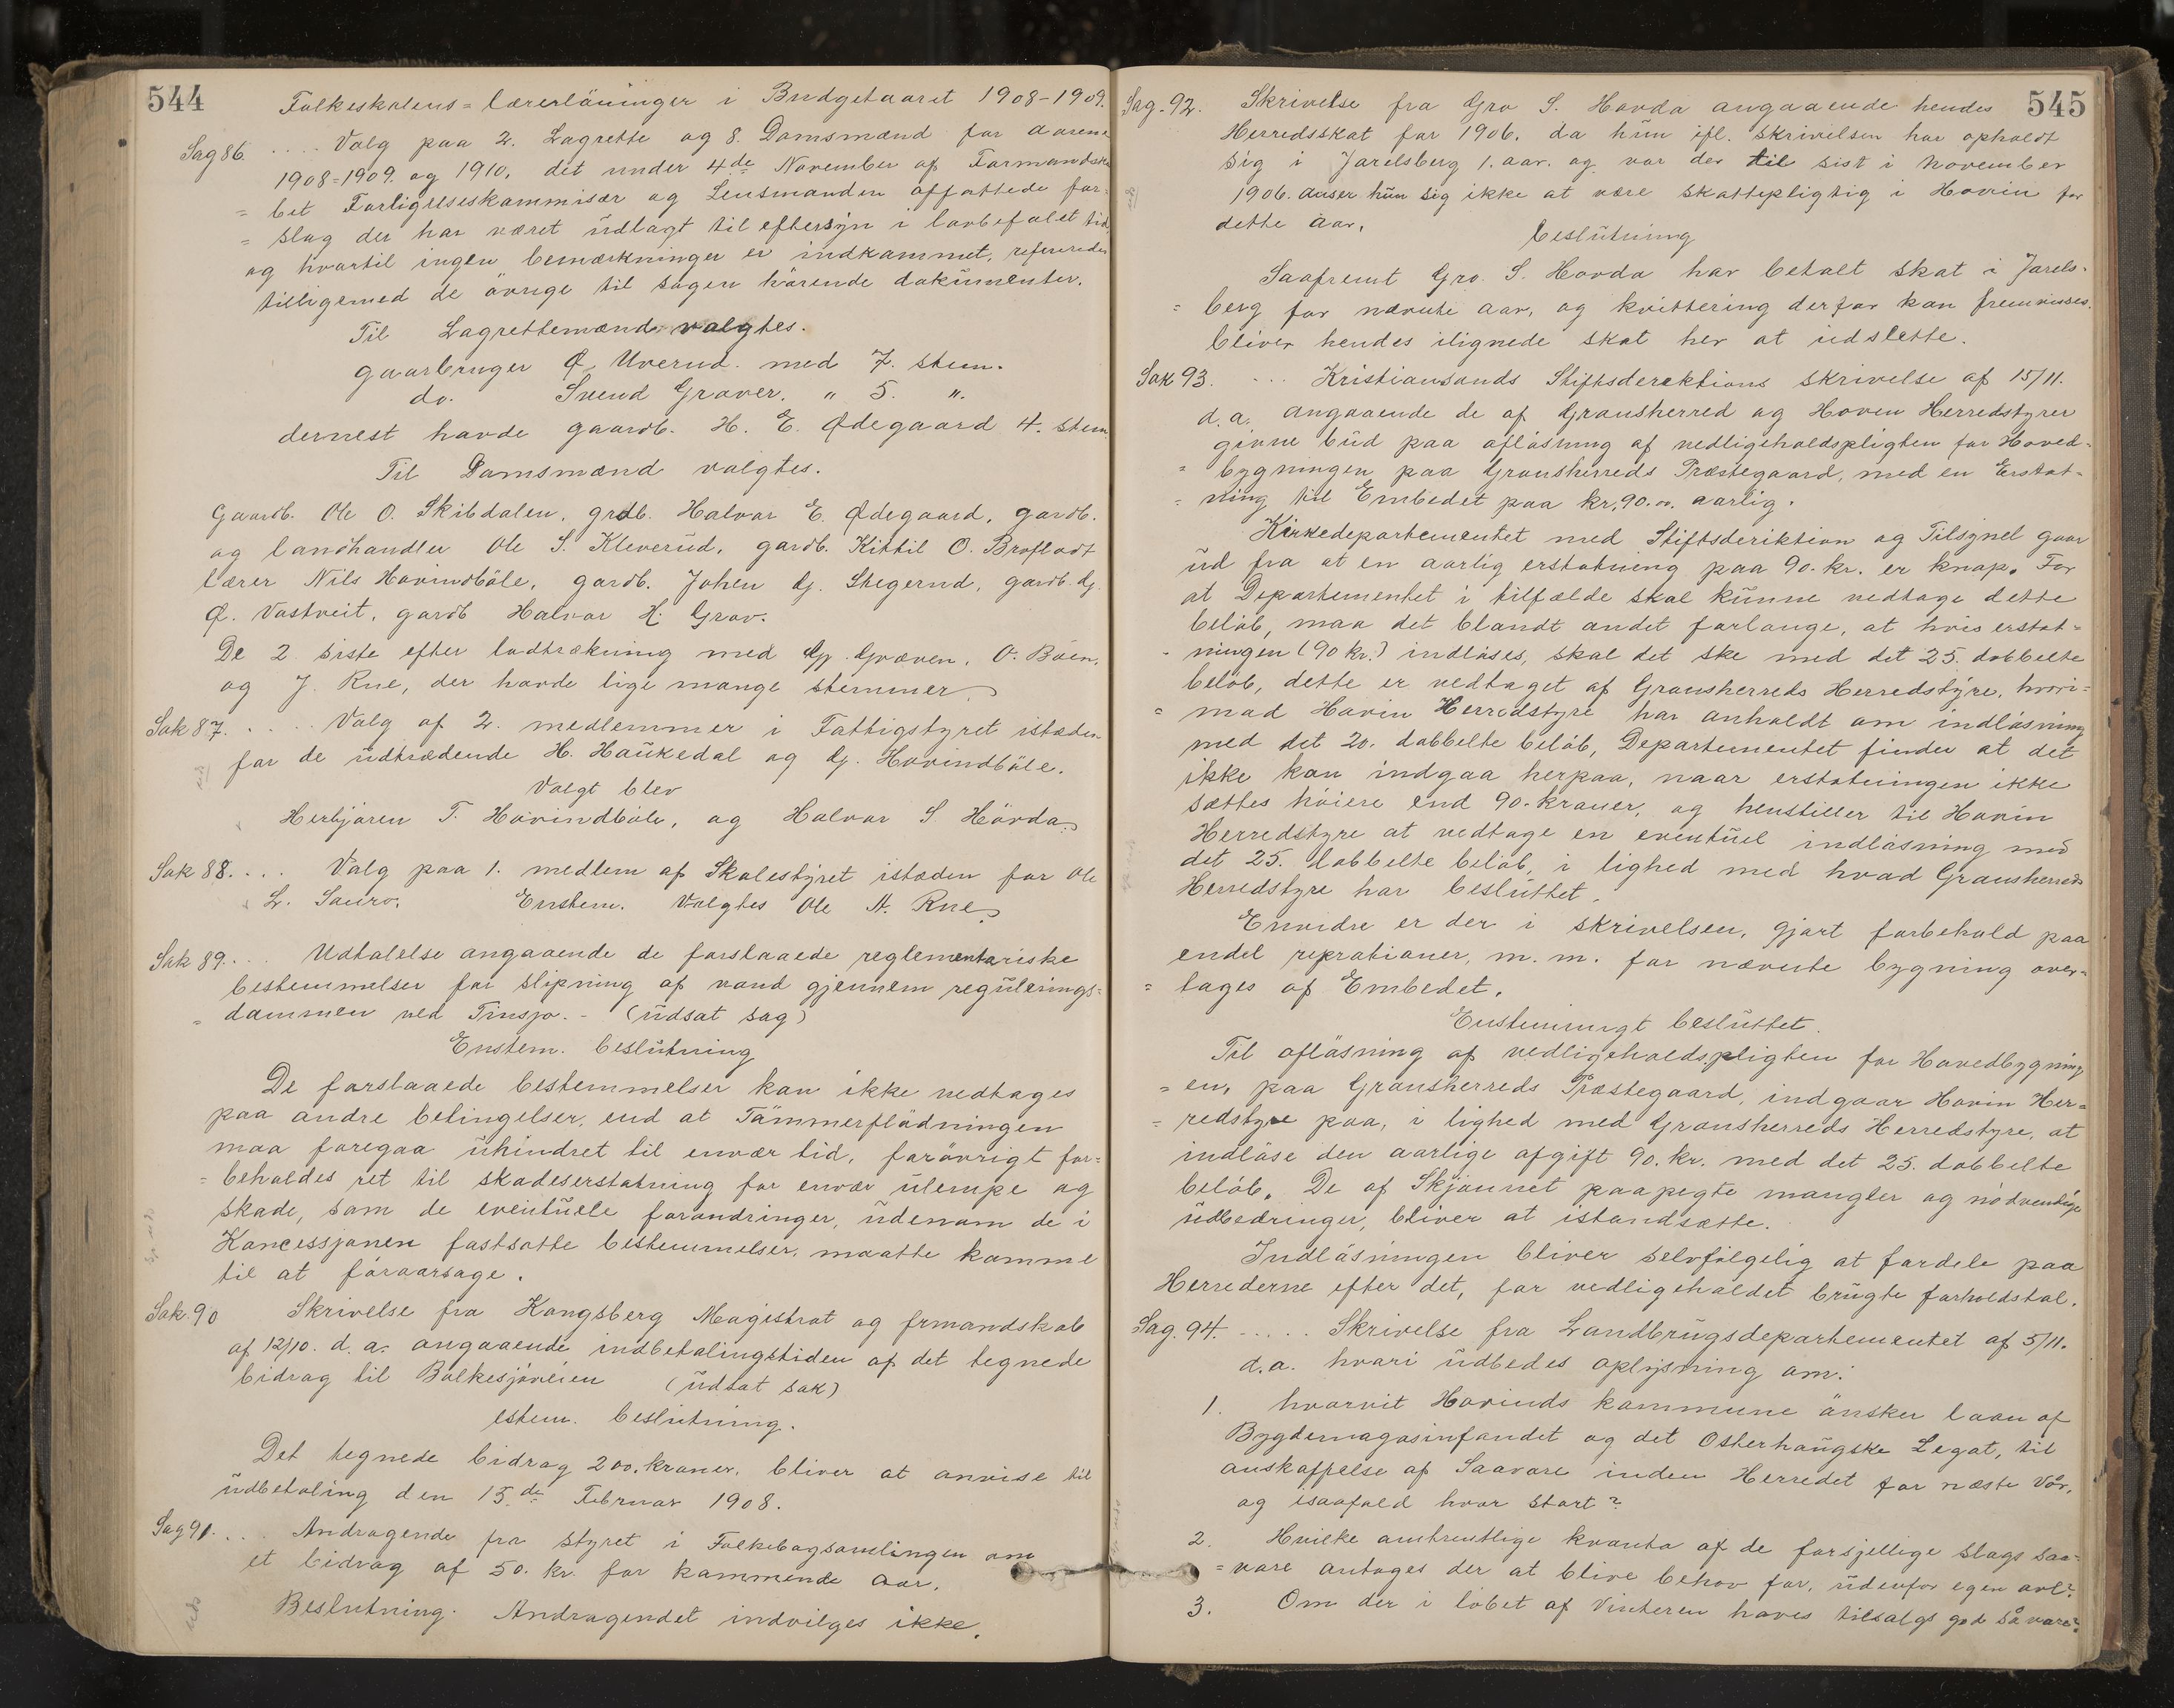 544
Folkeskolens=lærerlöninger i Budgetaaret 1908-1909.
Sag 86. .... Valg paa 2. Lagrette og 8. Domsmænd for aarene
1908=1909. og 1910. det under 4de November af Formandska
= bet Forligelseskommisær og Lensmanden affattede for=
= slag der har været üdlagt til eftersyn i lovbefalet tid,
og hvortil ingen bemærkninger er indkommet, refereredes
tilligemed de övrige til sagen hörende dokümenter.
Til Lagrettemænd valgtes.
gaarbruger Ø. Uverud. med 7. stem.
do. Svend Graver. " 5. ".
dernest havde gaardb. H. E. Ødegaard 4. stem
Til Domsmænd valgtes.
Gaardb. Ole O. Skibdalen, grdb. Halvor E. Ødegaard, gardb.
og landhandler Ole S. Kleverüd, gardb. Kittil O. Broflodt
lærer Nils Hovindböle, gardb. Johen Gj. Stegerud, gardb. Gj.
Ø. Vastveit, gardb Halvor H. Grov.
De 2 siste efter lodtrækning med Gj. Græven, O. Böen,
og J. Rue, der havde lige mange stemmer.
Sak 87. .... Valg af 2. medlemmer i Fattigstyret isteden
for de üdtrædende H. Haükedal og Gj. Hovindböle.
Valgt blev
Herbjören T. Hovindböle, og Halvor S. Hövda.
Sak 88. ... Valg paa 1. medlem af Skolestyret isteden for Ole
L. Sauro. Enstem. Valgtes Ole N. Rue.
Sak 89. ... Udtalelse angaaende de forslaaede reglementariske
bestemmelser for slipning af vand gjennem regülerings=
= dammen ved Tinsjo. - (üdsat sag)
Enstem. beslütning
De forslaaede bestemmelser kan ikke vedtages
paa andre betingelser, end at Tömmerflödningen
maa foregaa ühindret til enver tid, forövrigt for=
= beholdes ret til skadeserstatning for enver ülempe og
skade, som de eventüele forandringer, üdenom de i
Koncessjonen fastsatte bestemmelser, maatte komme
til at foraarsage.
Sak. 90 Skrivelse fra Kongsberg Magistrat og frmandskab
af 12/10. d. a. angaaende indbetalingstiden af det tegnede
bidrag til Bolkesjöveien (üdsat sak)
estem. beslutning.
Det tegnede bidrag 200. kroner, bliver at anvise til
üdbetaling den 15de Februar 1908.
Sag 91. ... Andragende fra styret i Folkebogsamlingen om
et bidrag af 50. kr. for kommende aar.
Beslutning. Andragendet indvilges ikke.
545
Sag. 92. Skrivelse fra Gro S. Hovda angaaende hendes
Herredsskat for 1906. da hün ifl. skrivelsen har opholdt
sig i Jarelsberg 1. aar. og var der til sist i november
1906. anser hün sig ikke at være skattepligtig i Hovin for
dette aar.
beslütning
Saafremt Gro. S. Hovda har betalt skat i Jarels-
= berg for nævnte aar, og kvittering derfor kan fremvises,
bliver hendes ilignede skat her at üdslette.
Sak 93. ... Kristiansands Stiftsderektions skrivelse af 15/11.
d. a. angaaende de af Gransherred og Hoven Herredstyrer
givne büd paa aflösning af vedligeholdspligten for Hoved-
= bygningen paa Gransherreds Præstegaard, med en Erstat-
= ning til Embedet paa kr. 90.00. aarlig.
Kirkedepartementet med Stiftsderiktion og Tilsynet gaar
üd fra at en aarlig erstatning paa 90. kr. er knap. For
at Departementet i tilfælde skal künne vedtage dette
belöb, maa det blandt andet forlange, at hvis erstat=
- ningen (90 kr.) indlöses, skal det ske med det 25. dobbelte
belöb, dette er vedtaget af Gransherreds Herredstyre, hvori=
= mod Hovin Herredstyre har anholdt om indlösning
med det 20. dobbelte belöb, Departementet finder at det
ikke kan indgaa herpaa, naar erstatningen ikke
sættes höiere end 90. kroner, og henstiller til Hovin
Herredstyre at vedtage en eventüel indlösning med
det 25. dobbelte belöb, i lighed med hvad Gransherreds
Herredstyre har besluttet.
Envidre er der i skrivelsen, gjort forbehold paa
endel reprationer, m. m. for nævnte bygning over=
= tages af Embedet.
Enstemmigt beslüttet.
Til aflösning af vedligeholdspligten for Hovedbygning
= en, paa Gransherreds Præstegaard, indgaar Hovin Her=
= redstyre paa, i lighed med Gransherreds Herredstyre, at
indlöse den aarlige afgift 90. kr. med det 25. dobbelte
belöb. De af Skjönnet paapegte mangler og nödvendige
üdbedringer, bliver at istandsætte.
Indlösningen bliver selvfölgelig at fordele paa
Herrederne efter det, for vedligeholdet brügte forholdstal.
Sag. 94. ..... Skrivelse fra Landbrügsdepartementet af 5/11.
d. a. hvori üdbedes oplysning om:
1. hvorvit Hovinds kommune önsker laan af
Bygdemagasinfondet og det Osterhaügske Legat, til
anskaffelse af Saavare inden Herredet for næste Vår,
og isaafald hvor stort?
2. Hvilke omtrentlige kvanta af de forsjellige slags saa=
= vare antages der at blive behov for, üdenfor egen avl?
3. Om der i löbet af vinteren haves tilsalgs god såvare?